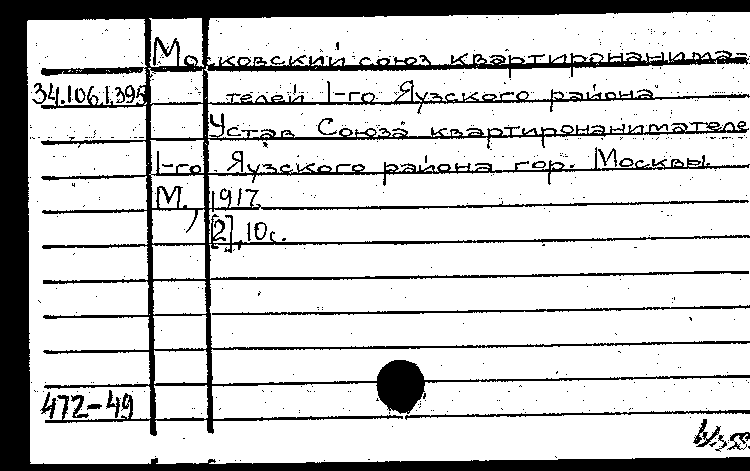 Московский союз квартиронанима-
34.106.1.395 телей 1-го Яузского района
Устав Союза квартиронанимателе
1-го Яузского района гор. Москвы.
М., 1917.
[2], 10с.
472-49